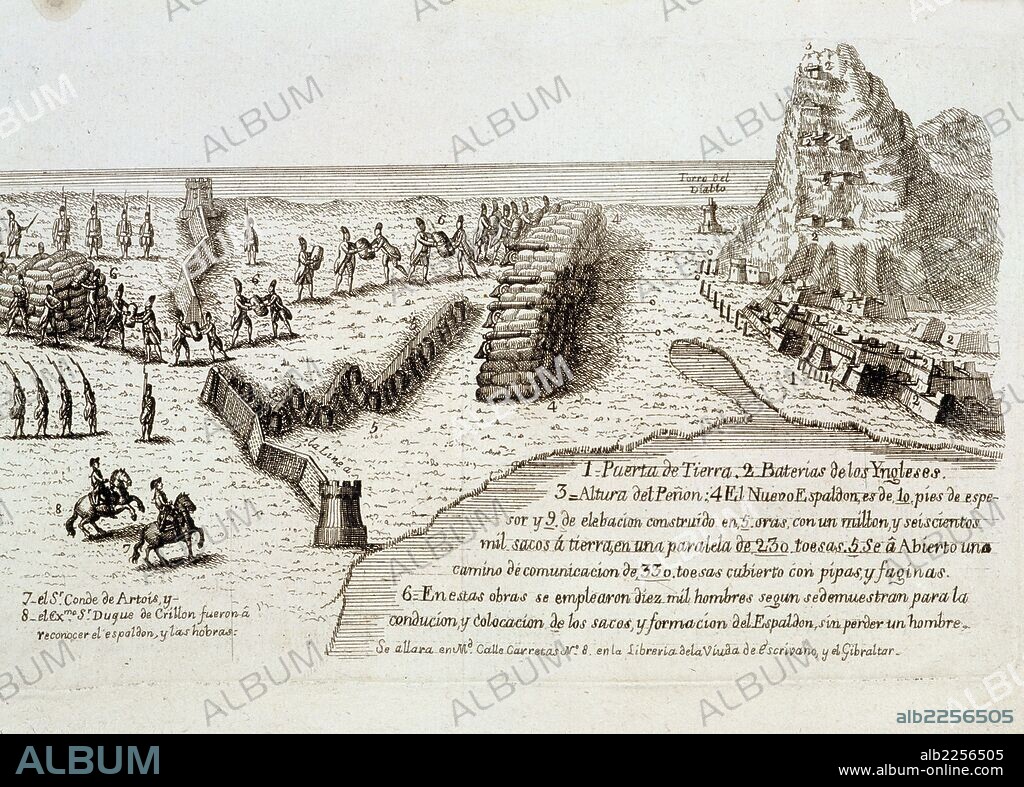 3
2
2
2
Torre Del
Diablo
6
4
6
6
6
2
2
1
4
5
La Linea
8
7
1=Puerta de Tierra. 2. Baterias de los Yngleses.
3=Altura del Peñon: 4 El Nuevo Espaldon, es de 10 pies de espe-
sor y 9. de elebacion construido en 5. oras, con un millon, y seiscientos
mil sacos á tierra, en una paralela de 230 toesas. 5 Se â Abierto una
camino de comunicacion de 330. toesas cubierto con pipas, y faginas.
6=En estas obras se emplearon diez mil hombres segun se demuestran para la
conducion, y colocacion de los sacos, y formacion del Espaldon, sin perder un hombre.
Se allara en Md. Calle Carretas No. 8. en la Libreria de la Viuda de Escrivano, y el Gibraltar.
7-el Sr. Conde de Artois, y-
8-el Exmo Sr. Duque de Crillon fueron â
reconocer el espaldon, y las hobras.
ALBUM
alb2256505
ALBUM
alb2256505
www.album-online.com